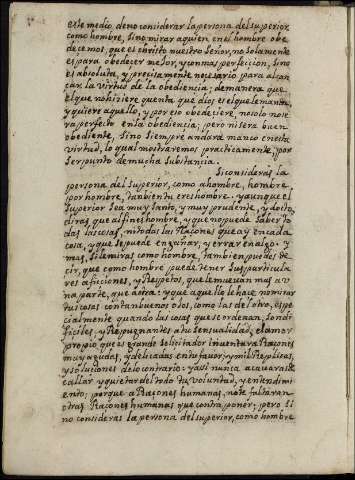 este medio, de no considerar la persona del superior,
como hombre, sino mirar a quien en el hombre obe
decemos, que es christo nuestro señor, no solamente
es para obedecer mejor, y con mas perfeccion, sino
es absoluta, y precisamente necesario para alcan
çar la virtud de la obediencia; de manera que
el que no hiziere quenta que dios es el que le manda,
y quiere aquello, y por eso obedeciere, no solo no se
ra perfecto en la obediencia, pero ni sera buen
obediente. Sino siempre andara manco en esta
virtud, lo qual mostraremos practicamente, por
ser punto de mucha substancia.
Si consideras la
persona del superior, como a hombre, hombre,
por hombre, tambien tu eres hombre. y aunque el
superior sea muy santo, y muy prudente, y docto,
diras que al fin es hombre, y que no puede saber to
das las cosas, ni todas las Raçones que ay en cada
cosa, y que se puede engañar, y errar en algo. y
mas, si le miras como hombre, tambien puedes de
cir, que como hombre puede tener sus particula
res aficiones, y Respetos, que le muevan mas a v
na parte, que a otra: y que aquello le hace no mirar
tus cosas con tan buenos ojos, como las del otro, espe
cialmente quando las cosas que se ordenan, son di
ficiles, y Repugnantes a tu sensualidad, el amor
propio que es grande solicitador inventara Raçones
muy agudas, y delicadas en tu favor, y mil Replicas,
y soluciones de lo contrario: y asi nunca acavaras de
callar y quietar del todo tu voluntad, y entendimi
ento; porque a Raçones humanas, no te faltaran
otras Raçones humanas que contraponer; pero si
no consideras la persona del superior, como hombre